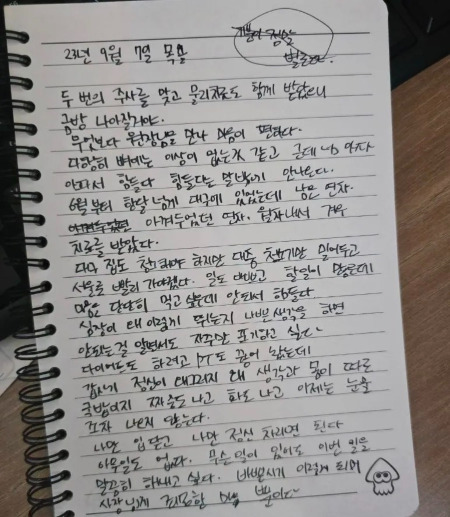 23년 9월 7일 목요일
기쁨의 정신
두 번의 주사를 맞고 물리치료도 함께 받았으니
금방 나아질거야.
무엇보다 원장님을 만나 마음이 편하다.
다행히 뼈에는 이상이 없는것 같고 근데 너무 아파
아파서 힘들다 힘들다는 말밖에 안나온다.
6월부터 한달 넘게 대구에 있었는데 남은 연차.
아껴두었던 아껴두었던 연차. 월차내서 겨우
치료를 받았다.
다음 짐도 하지만 대충 밀어두고
서울로 빨리 가야겠다. 일도 바쁘고 할일이 많은데
마음은 단단히 먹고 싶은데 안되서 힘들다
심장이 왜이렇게 뛰는지 나쁜생각을 하면
안되는걸 알면서도 자꾸만 포기하고 싶다.
다이어트도 하려고 PT도 끊어 놨는데
갑자기 정신이 왜그러지 왜 생각과 몸이 따로
짜증도 나고 화도 나고 이제는 눈물
조차 나오지 않는다.
나만 입 닫고 나만 정신 차리면 된다
아무일도 없다. 무슨일이 있어도 이번 일을
말끔히 해내고 싶다. 이렇게 되어
사장님께 죄송한 마음 뿐이다